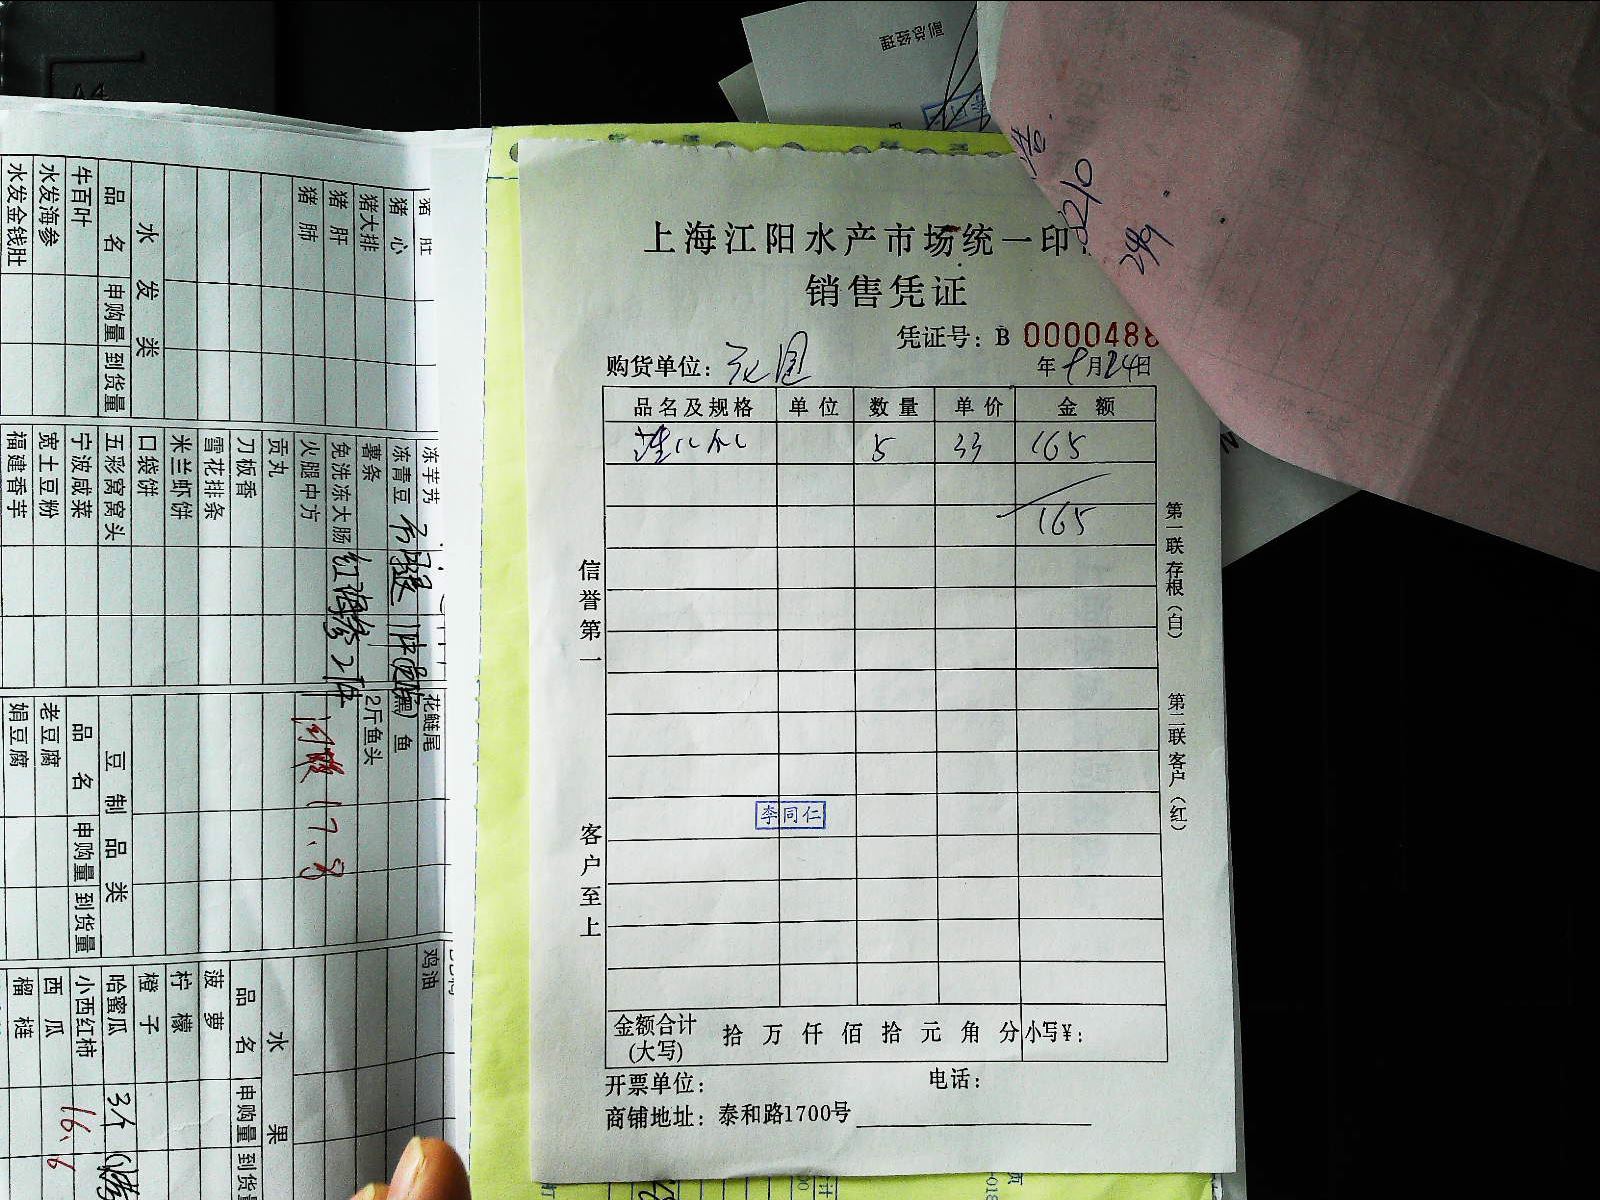 副总经理
3210
299
上海江阳水产市场统一印
销售凭证
凭证号：B 0000488
购货单位：花园 年9月24日
品名及规格 单位 数量 单价 金额
5 33 165
165
信誉第一
客户至上
第一联存根（白）
第二联客户（红）
李同仁
金额合计(大写) 拾 万 仟 佰 拾 元 角 分 小写¥：
开票单位： 电话：
商铺地址：泰和路1700号
猪肚
猪心
猪大排
猪肝
猪肺
水发类
品名 申购量 到货量
牛百叶
水发海参
水发金钱肚
冻芋艿
冻青豆
薯条
免洗冻大肠 红海参2件
火腿中方
贡丸
刀板香
雪花排条
米兰虾饼
口袋饼
五彩窝窝头
宁波咸菜
宽土豆粉
福建香芋
花鲢尾
鱼
2斤鱼头
17.8
豆制品类
品名 申购量 到货量
老豆腐
娟豆腐
鸡油
水果
品名 申购量 到货量
菠萝
柠檬
橙子
哈蜜瓜 3个
小西红柿 16.6
西瓜
榴梿